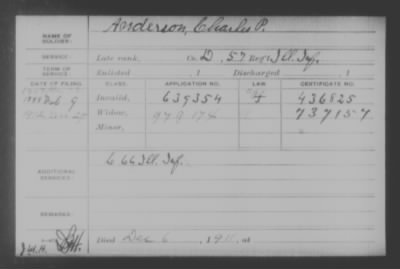 NAME OF SOLDIER: Anderson, Charles P.
SERVICE: Late rank, Co. D, 57 Reg't Ill. Inf.
TERM OF SERVICE: Enlisted , 1 Discharged , 1
DATE OF FILING. CLASS. APPLICATION NO. LAW. CERTIFICATE NO.
1888 Feb 9 Invalid, 639354 436825
Widow, 979174 737157
Minor,
ADDITIONAL SERVICES: C 66 Ill. Inf.
REMARKS:
Died Dec 6, 1911, at
J.W.H.